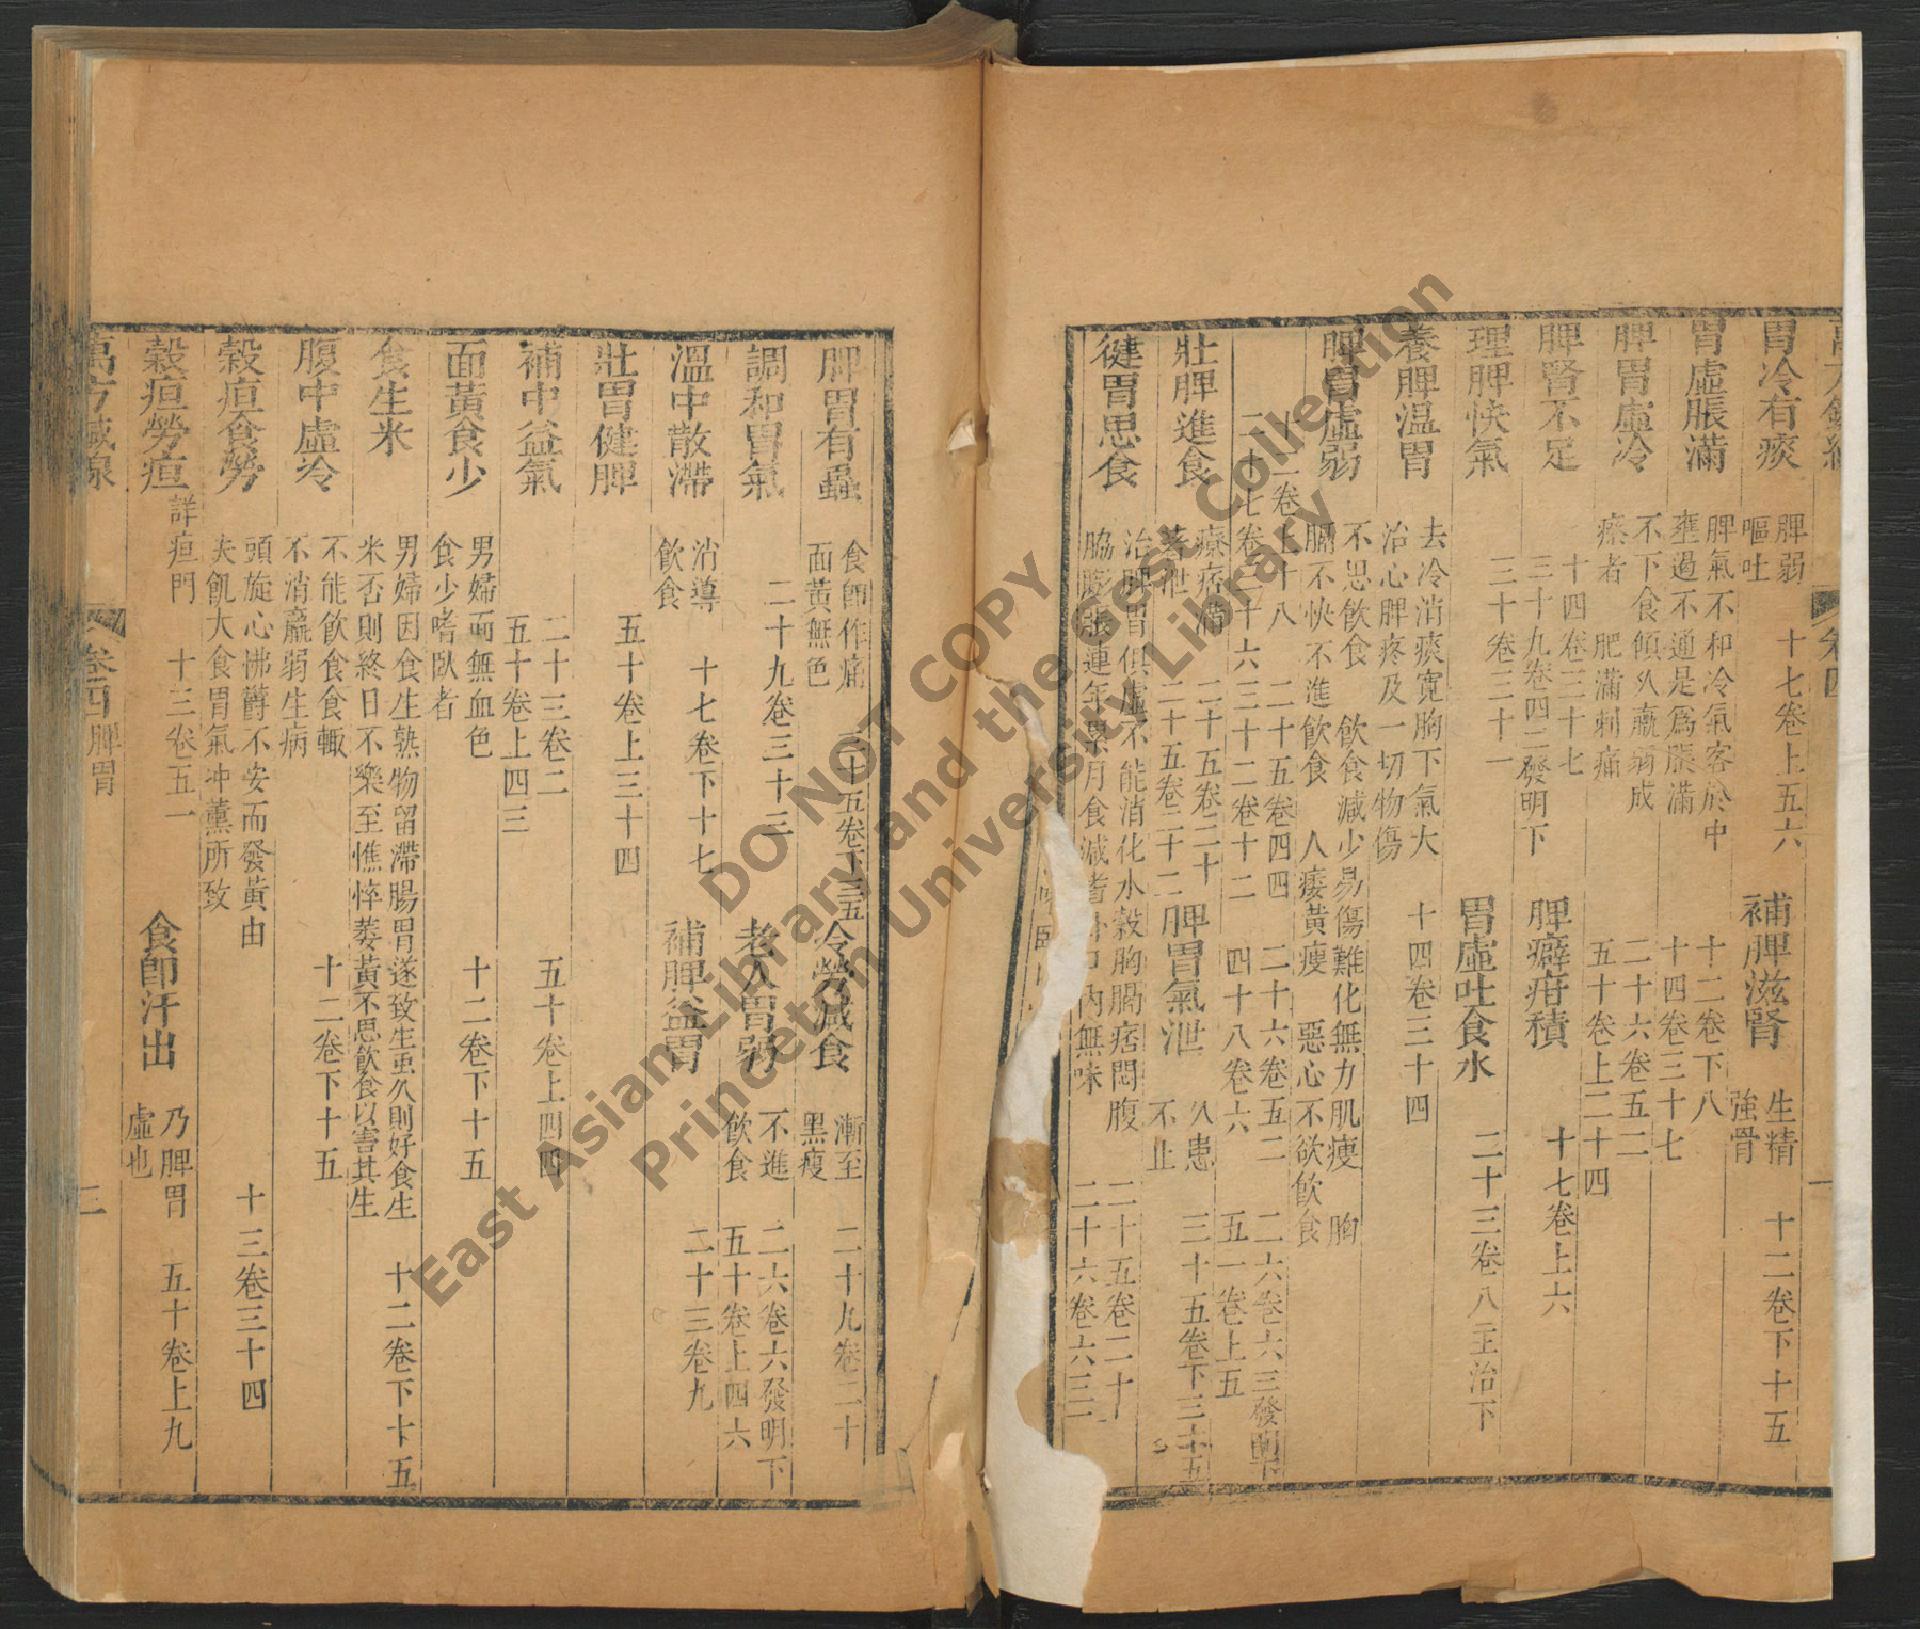 卷四
一
胃冷有痰 脾弱嘔吐 十七卷上五六 補脾滋腎 生精強骨 十二卷下十五
胃虛脹滿 脾氣不和冷氣客於中壅遏不通是爲脹滿 十二卷下八 十四卷三十七
脾胃虛冷 不下食傾久羸弱成瘵者 肥滿刺痛 二十六卷五二 五十卷上二十四
脾腎不足 十四卷三十七 三十九卷四二發明下 脾癖疳積 十七卷上六
理脾快氣 三十卷三十一 胃虛吐食水 二十三卷八主治下
養脾温胃 去冷消痰寬胸下氣大治心脾疼及一切物傷 十四卷三十四
脾胃虛弱 不思飲食 飲食減少易傷難化無力肌瘦 胸膈不快不進飲食 人痿黃瘦 惡心不欲飲食
二十一卷上十八 二十五卷四四 二十六卷五二 二六卷六三發明下 二十七卷三十六 三十二卷十二 四十八卷六 五一卷上五
壯脾進食 療痞滿 二十五卷二十 二十五卷二十二 脾胃氣泄 久患不止 三十五卷下三十五
健胃思食 治脾胃俱虛不能消化水穀胸膈痞悶腹脇膨脹連年累月食減嗜卧口內無味 二十五卷二十 二十六卷六三
脾胃有蟲 食即作痛面黃無色 三十五卷下三五 冷勞減食 漸至黑瘦 二十九卷二十
調和胃氣 二十九卷三十三 老人胃弱 不進飲食 二六卷六發明下 五十卷上四六
溫中散滯 消導飲食 十七卷下十七 補脾益胃 二十三卷九
壯胃健脾 五十卷上三十四
補中益氣 二十三卷二 五十卷上四三 五十卷上四四
面黃食少 男婦面無血色食少嗜臥者 十二卷下十五
食生米 男婦因食生熟物留滯腸胃遂致生虫久則好食生米否則終日不樂至憔悴萎黃不思飲食以害其生 十二卷下十五
腹中虛冷 不能飲食食輙不消羸弱生病 十二卷下十五
穀疸食勞 頭旋心怫欝不安而發黃由失飢大食胃氣冲薰所致 十三卷三十四
穀疸勞疸 詳疸門 十三卷五一 食卽汗出 乃脾胃虛也 五十卷上九
萬方鍼線 卷四脾胃 二
DO NOT COPY
East Asian Library and the Gest Collection
Princeton University Library